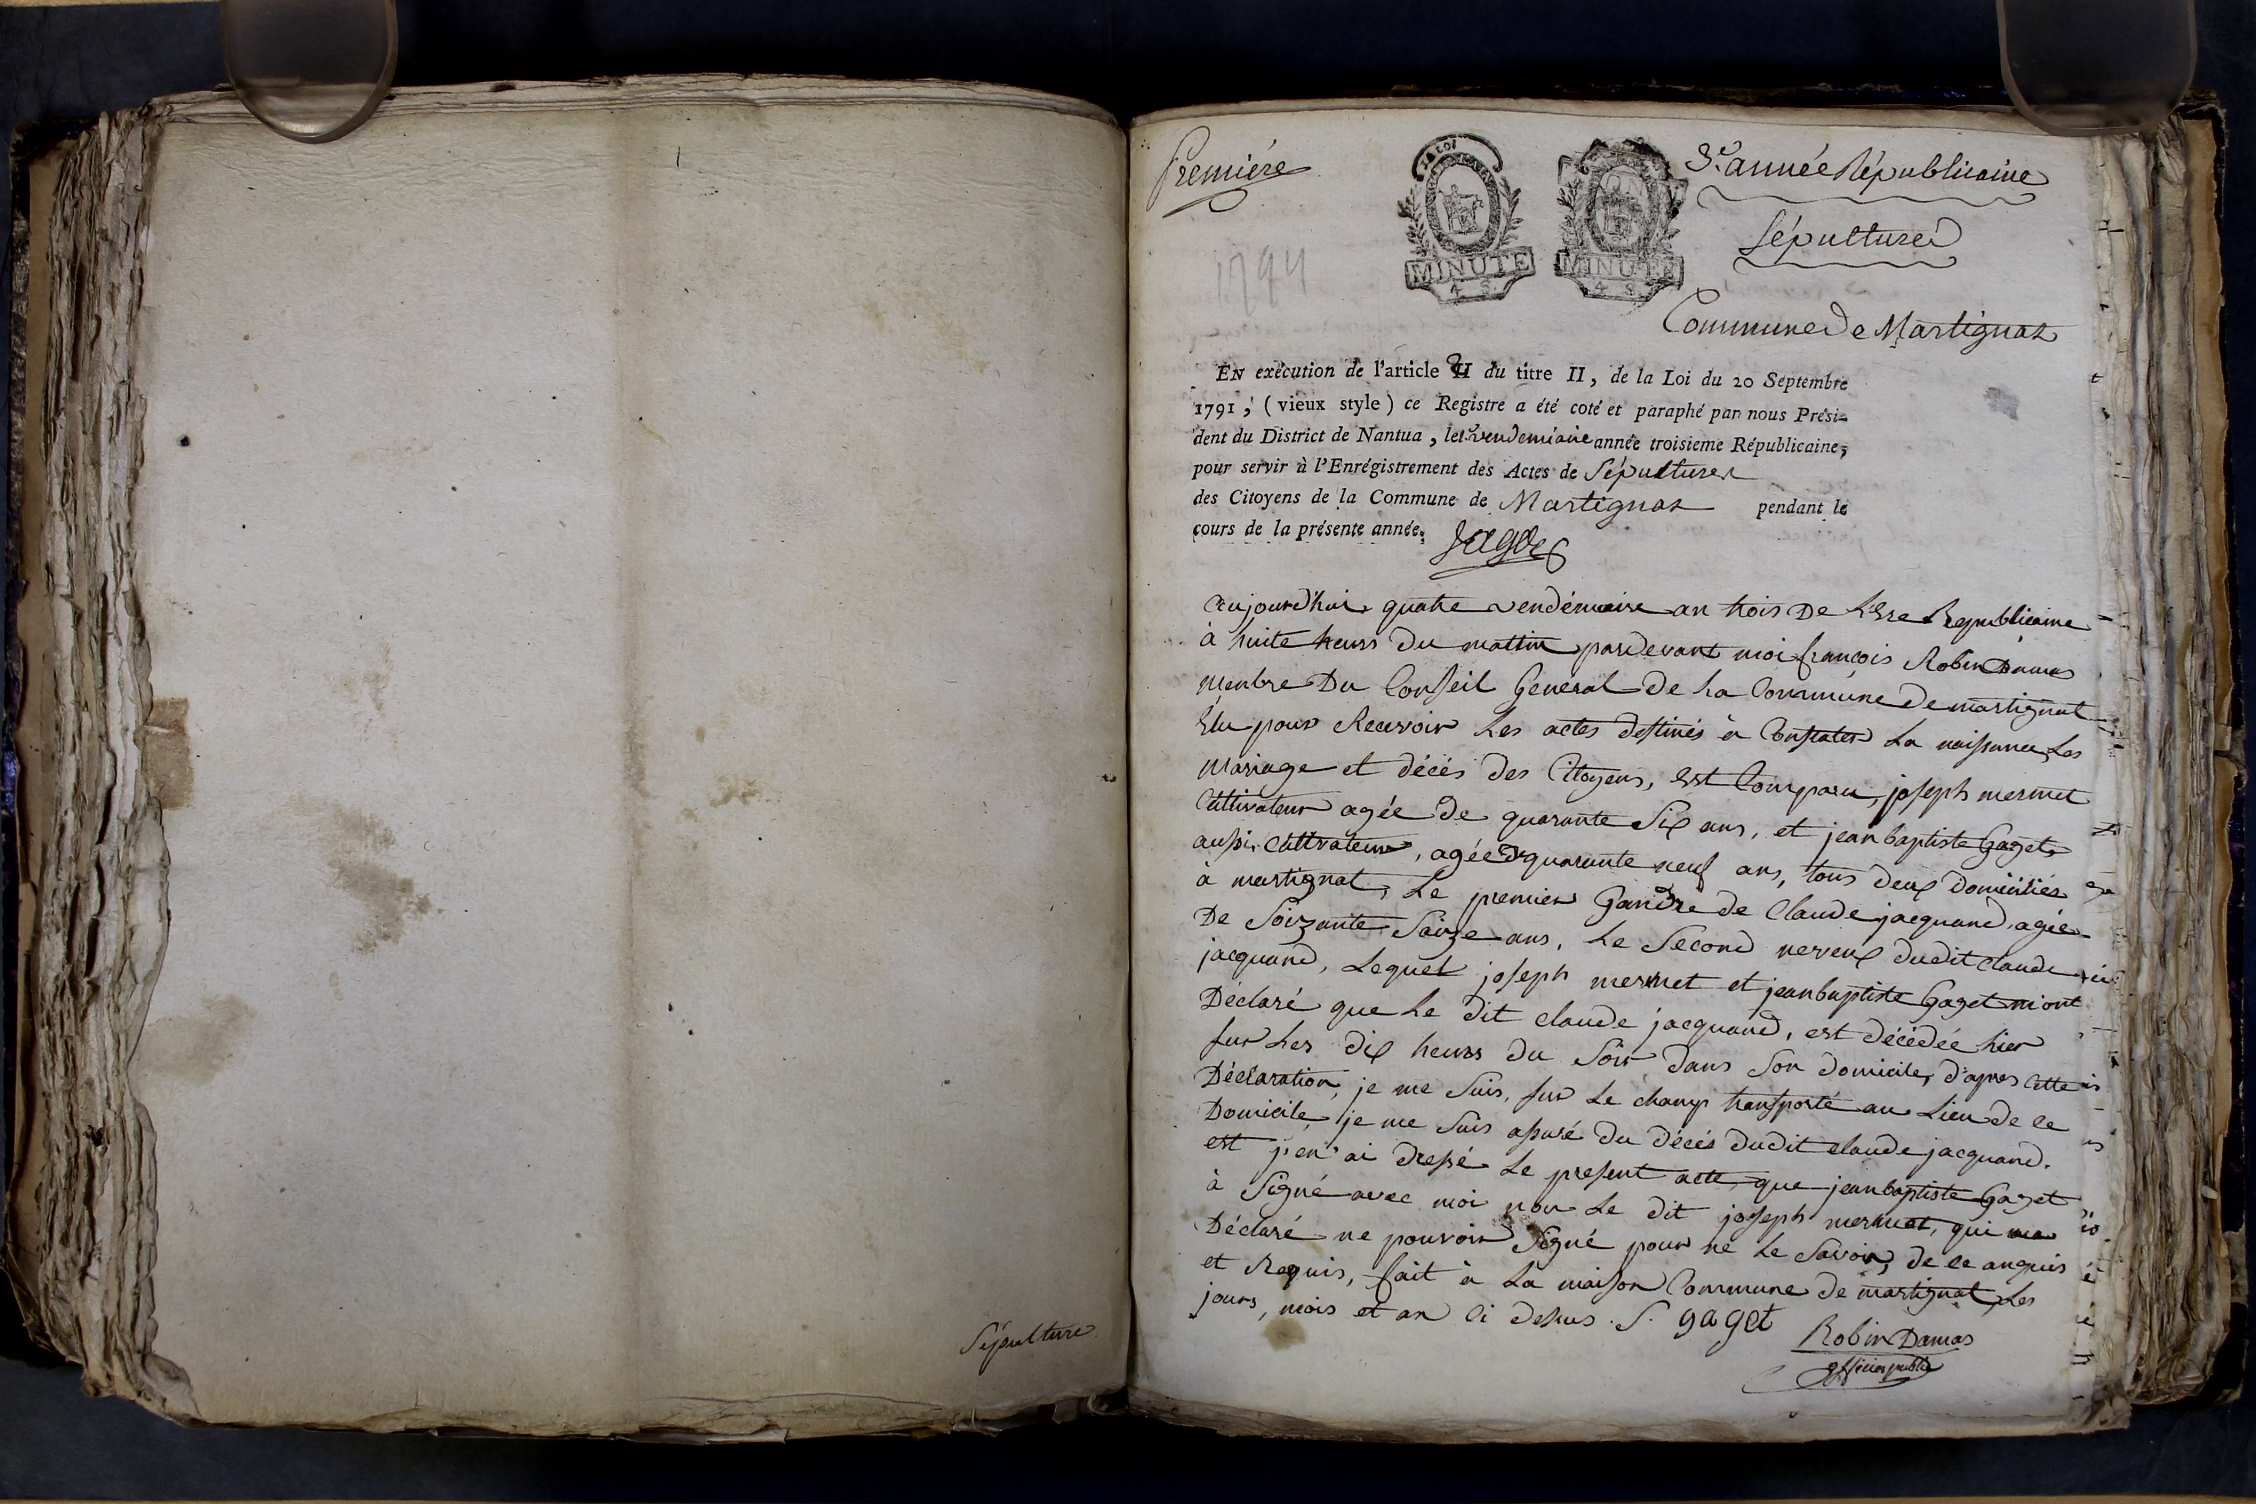 Sépulture
Premiére
3.e année Républicaine
Sépultures
1794
LA LOI
MINUTE
4 S.
MINUTE
4 S.
Commune de Martignat
EN exécution de l'article II du titre II, de la Loi du 20 Septembre
1791, (vieux style) ce Registre a été coté et paraphé par nous Prési-
dent du District de Nantua, le vendemiaire année troisieme Républicaine,
pour servir à l'Enrégistrement des Actes de Sépultures
des Citoyens de la Commune de Martignat pendant le
cours de la présente année.
aujourd'hui quatre vendémiaire an trois De L'Ere Republicaine
à huite heurs Du mattin pardevant moi françois Robin Damas
Menbre Du Conseil General de La Commune de martignat
Elu pour Recevoir Les actes destinés à Constater La naissance Les
Mariage et décés des Citoyens, Est Comparu, joseph mermet
Cultivateur agée De quarante Six ans, et jean baptiste Gaget
aussi Cultivateur, agée de quarante neuf ans, tous deux domiciliés
à martignat, Le premier Gandre de Claude jacquand, agée
De Soixante Saize ans, Le Second neveux dudit Claude
jacquand, Lequel joseph mermet et jean baptiste Gaget m'ont
Déclaré que Le dit claude jacquand, est décédée hier
sur Les dix heurs du Soir dans Son domicile, d'apres Cette
Déclaration, je me Suis, sur Le champ transporté au Lieu de ce
Domicile, je me Suis assuré du décés dudit claude jacquand.
est j'en ai dressé Le present acte, que jean baptiste Gaget
à Signé avec moi non Le dit joseph mermet, qui ma
Déclaré ne pouvoir Signé pour ne Le Savoir, de ce anquis
et Requis, fait à La maison Commune de martignat, Les
jours, mois et an Ci desus. S. gaget
Robin Damas
officier public